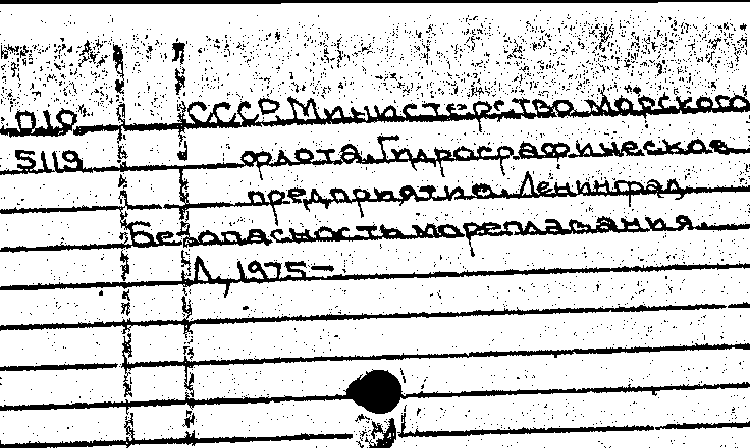 П10 СССР. Министерство морского
5119 флота. Гидрографическое
предприятие. Ленинград.
Безопасность мореплавания.
Л., 1975-